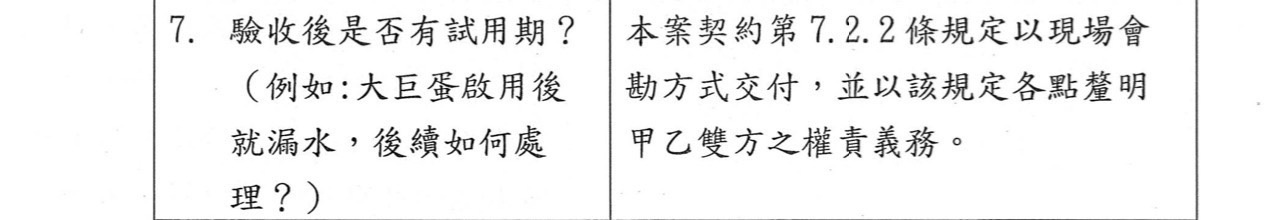 7. 驗收後是否有試用期？
（例如:大巨蛋啟用後
就漏水，後續如何處
理？）
本案契約第 7.2.2 條規定以現場會
勘方式交付，並以該規定各點釐明
甲乙雙方之權責義務。